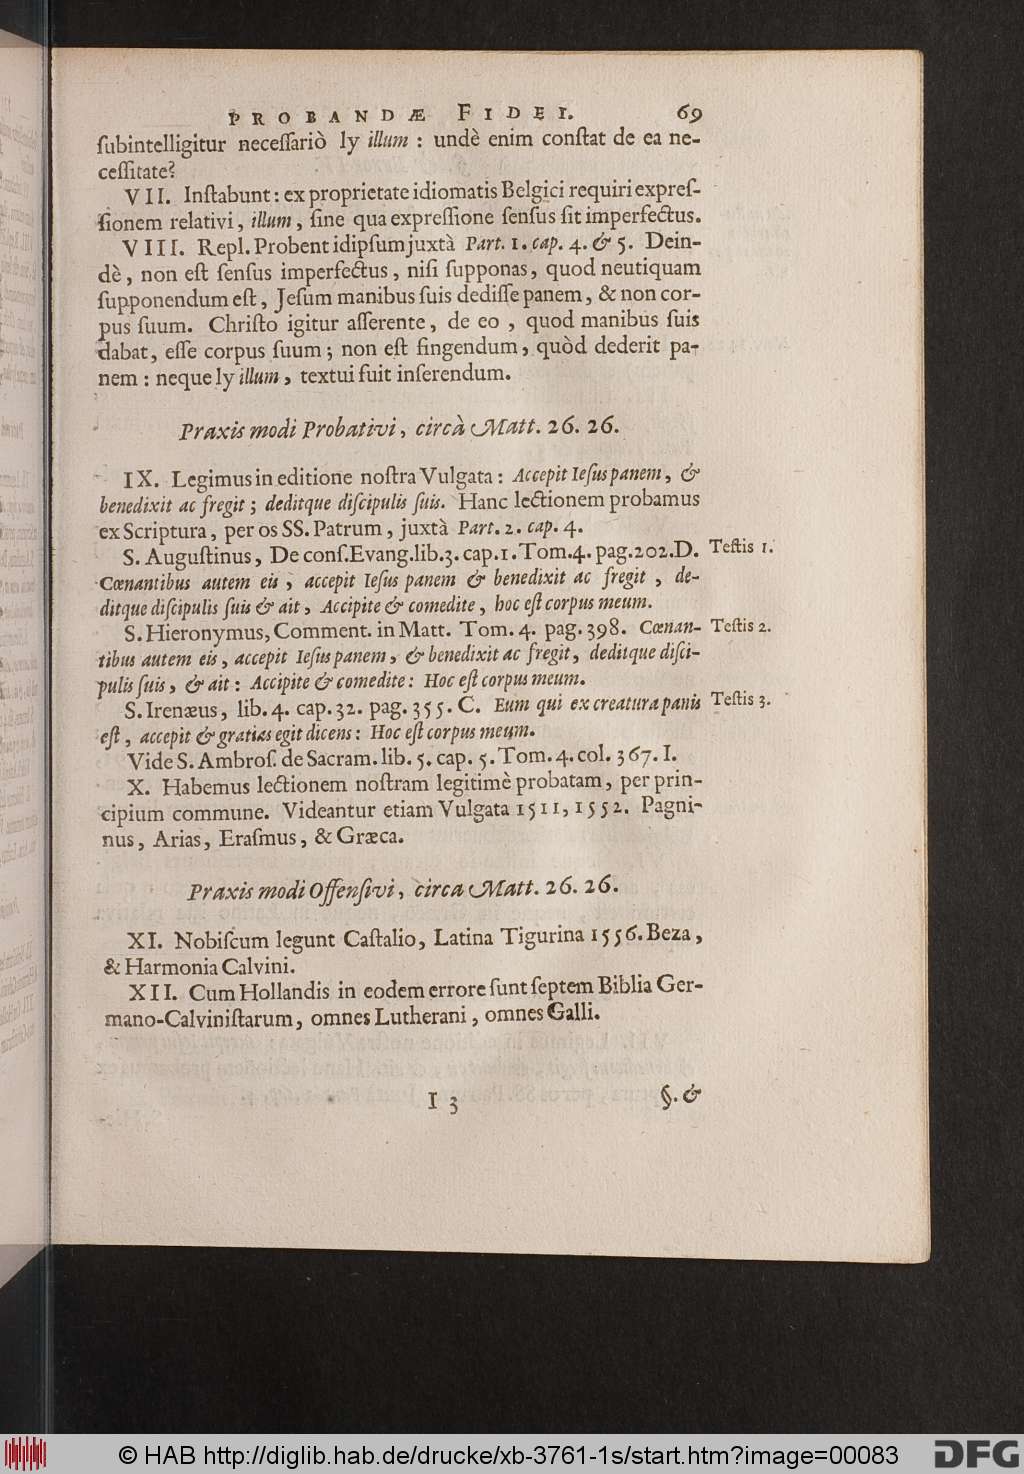 PROBANDÆ FIDEI. 69
ſubintelligitur neceſſariò ly illum : undè enim conſtat de ea ne-
ceſſitate?
VII. Inſtabunt: ex proprietate idiomatis Belgici requiri expreſ-
ſionem relativi, illum, ſine qua expreſſione ſenſus ſit imperfectus.
VIII. Repl. Probent idipſum juxtà Part. 1. cap. 4. & 5. Dein-
dè, non eſt ſenſus imperfectus, niſi ſupponas, quod neutiquam
ſupponendum eſt, Jeſum manibus ſuis dediſſe panem, & non cor-
pus ſuum. Chriſto igitur aſſerente, de eo, quod manibus ſuis
dabat, eſſe corpus ſuum; non eſt fingendum, quòd dederit pa-
nem: neque ly illum, textui fuit inſerendum.
Praxis modi Probativi, circà Matt. 26. 26.
IX. Legimus in editione noſtra Vulgata: Accepit Ieſus panem, &
benedixit ac fregit; deditque diſcipulis ſuis. Hanc lectionem probamus
ex Scriptura, per os SS. Patrum, juxtà Part. 2. cap. 4.
S. Auguſtinus, De conſ. Evang. lib. 3. cap. 1. Tom. 4. pag. 202. D. Teſtis 1.
Cœnantibus autem eis, accepit Ieſus panem & benedixit ac fregit, de-
ditque diſcipulis ſuis & ait, Accipite & comedite, hoc eſt corpus meum.
S. Hieronymus, Comment. in Matt. Tom. 4. pag. 398. Cœnan- Teſtis 2.
tibus autem eis, accepit Ieſus panem, & benedixit ac fregit, deditque diſci-
pulis ſuis, & ait: Accipite & comedite: Hoc eſt corpus meum.
S. Irenæus, lib. 4. cap. 32. pag. 355. C. Eum qui ex creatura panis Teſtis 3.
eſt, accepit & gratias egit dicens: Hoc eſt corpus meum.
Vide S. Ambroſ. de Sacram. lib. 5. cap. 5. Tom. 4. col. 367. I.
X. Habemus lectionem noſtram legitimè probatam, per prin-
cipium commune. Videantur etiam Vulgata 1511, 1552. Pagni-
nus, Arias, Eraſmus, & Græca.
Praxis modi Offenſivi, circa Matt. 26. 26.
XI. Nobiſcum legunt Caſtalio, Latina Tigurina 1556. Beza,
& Harmonia Calvini.
XII. Cum Hollandis in eodem errore ſunt ſeptem Biblia Ger-
mano-Calviniſtarum, omnes Lutherani, omnes Galli.
I 3 §. &
© HAB http://diglib.hab.de/drucke/xb-3761-1s/start.htm?image=00083
DFG